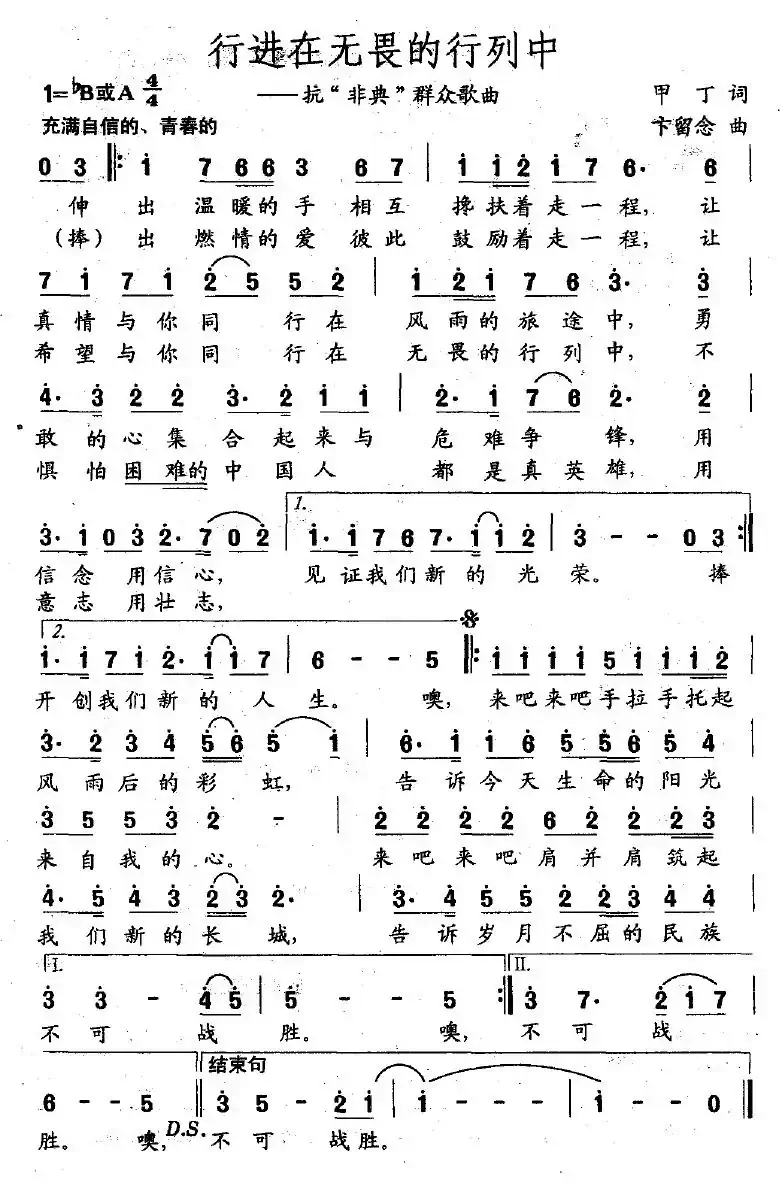 行进在无畏的行列中
1=♭B或A 4/4 ——抗“非典”群众歌曲 甲 丁 词
充满自信的、青春的 卞留念 曲
0 3 ‖: i 7 6 6 3 6 7 | i i 2 i 7 6· 6
伸 出 温 暖的 手 相 互 搀扶着走一程, 让
(捧) 出 燃 情的 爱 彼 此 鼓励着走一程, 让
7 i 7 i 2 5 5 2 | i 2 i 7 6 3· 3
真 情 与 你 同 行 在 风 雨的 旅 途 中, 勇
希 望 与 你 同 行 在 无 畏的 行 列 中, 不
4· 3 2 2 3· 2 i i | 2· i 7 6 2· 2
敢 的 心 集 合 起 来 与 危 难 争 锋, 用
惧 怕 困 难的 中 国 人 都 是 真 英 雄, 用
1.
3· i 0 3 2· 7 0 2 | i· i 7 6 7· i i 2 | 3 - - 0 3 :‖
信 念 用 信 心, 见 证 我 们 新 的 光 荣。 捧
意 志 用 壮 志,
2.
i· i 7 i 2· i i 7 | 6 - - 5 ‖: i i i i 5 i i i 2
开 创 我 们 新 的 人 生。 噢, 来吧来吧手拉手托起
3· 2 3 4 5 6 5 i | 6· i i 6 5 5 6 5 4
风 雨 后 的 彩 虹, 告 诉 今 天 生 命 的 阳 光
3 5 5 3 2 - | 2 2 2 2 6 2 2 2 3
来 自 我 的 心。 来 吧 来 吧 肩 并 肩 筑 起
4· 5 4 3 2 3 2· | 3· 4 5 5 2 2 3 4 4
我 们 新 的 长 城, 告 诉 岁 月 不 屈 的 民 族
I. II.
3 3 - 4 5 | 5 - - 5 :‖ 3 7· 2 i 7
不 可 战 胜。 噢, 不 可 战
结束句
6 - - 5 ‖ 3 5 - 2 i | i - - - | i - - 0 ‖
胜。 噢, D.S. 不 可 战 胜。